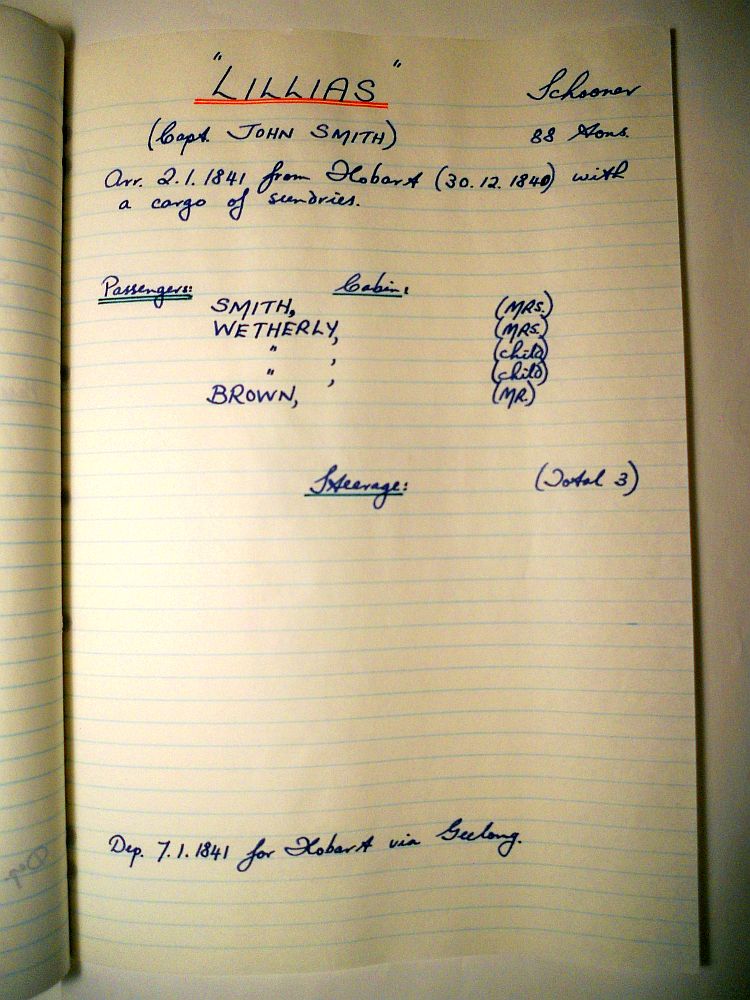 "LILLIAS" Schooner
(Capt. JOHN SMITH) 88 Tons.
Arr. 2.1.1841 from Hobart (30.12.1840) with
a cargo of sundries.
Passengers: Cabin:
SMITH, (MRS.)
WETHERLY, (MRS.)
" , (child)
" , (child)
BROWN, (MR.)
Steerage: (Total 3)
Dep. 7.1.1841 for Hobart via Geelong.